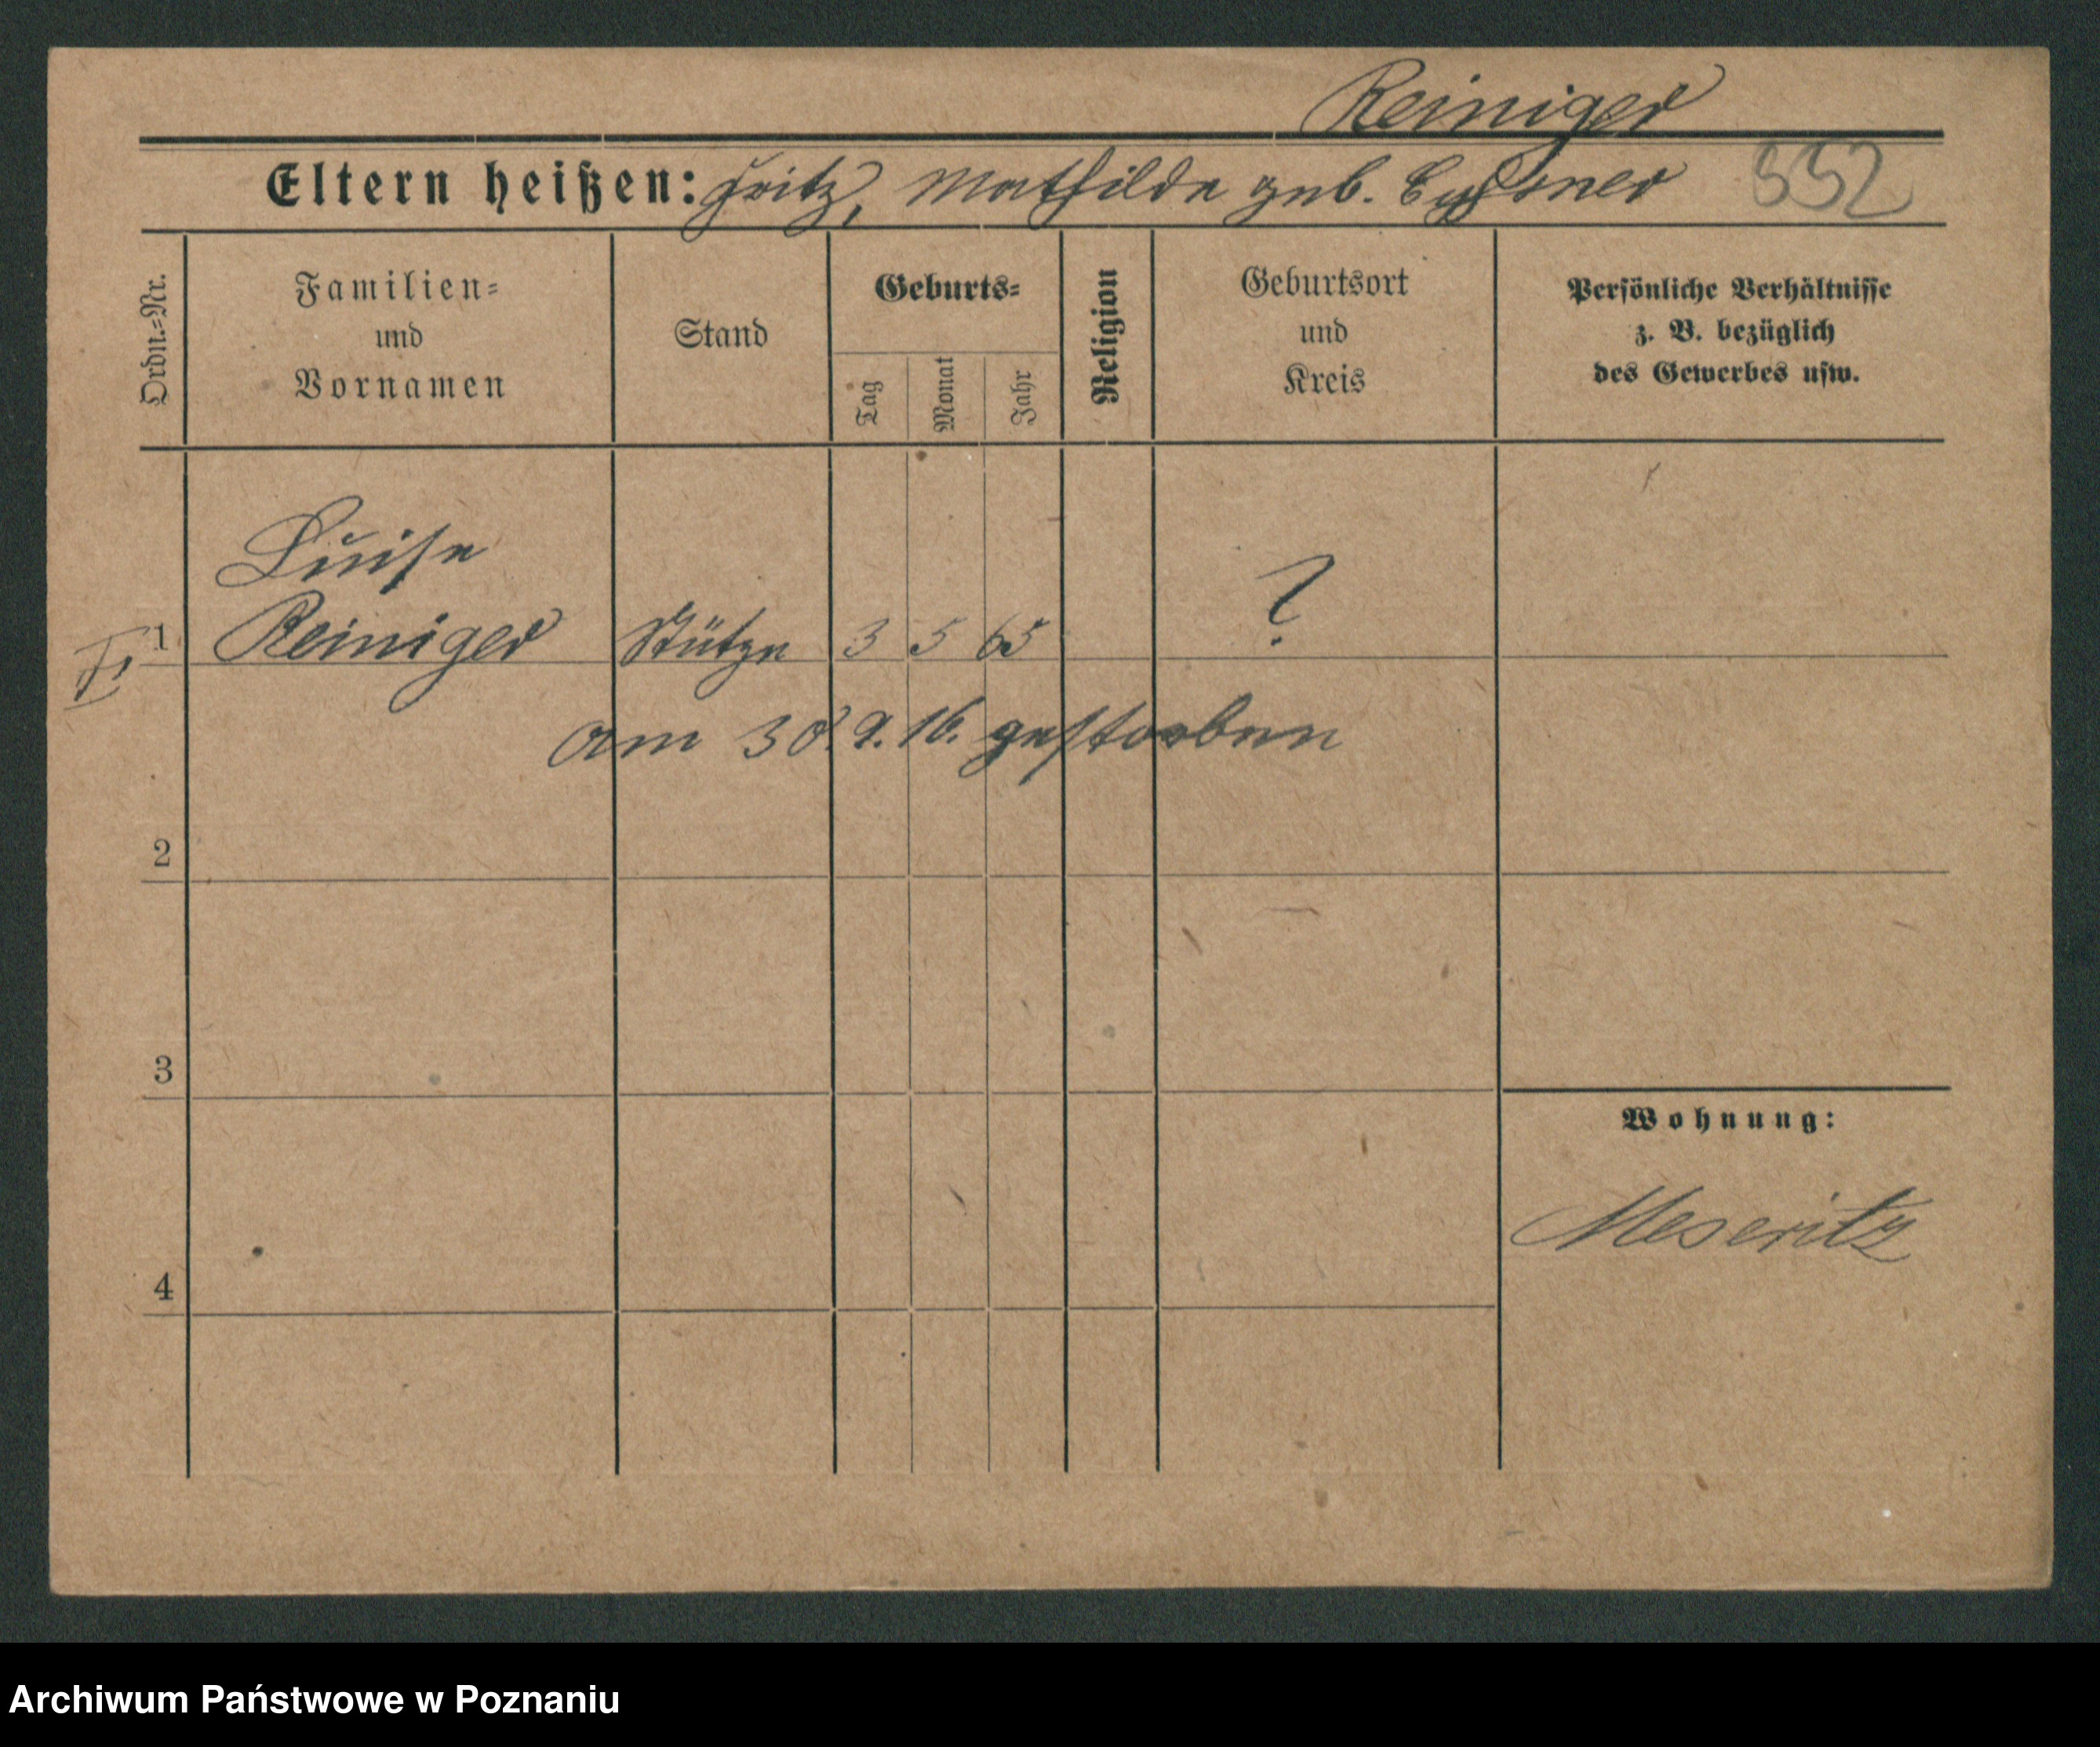 Reiniger
Eltern heißen: Fritz, Mathilde geb. 552
Ordn.-Nr.
Familien-
und
Vornamen
Stand
Geburts-
Tag
Monat
Jahr
Religion
Geburtsort
und
Kreis
Persönliche Verhältnisse
z. B. bezüglich
des Gewerbes usw.
Luise
1 Reiniger Stütze 3 5 65 ?
am 30. 9. 16. gestorben
2
3
Wohnung:
Meseritz
4
Archiwum Państwowe w Poznaniu